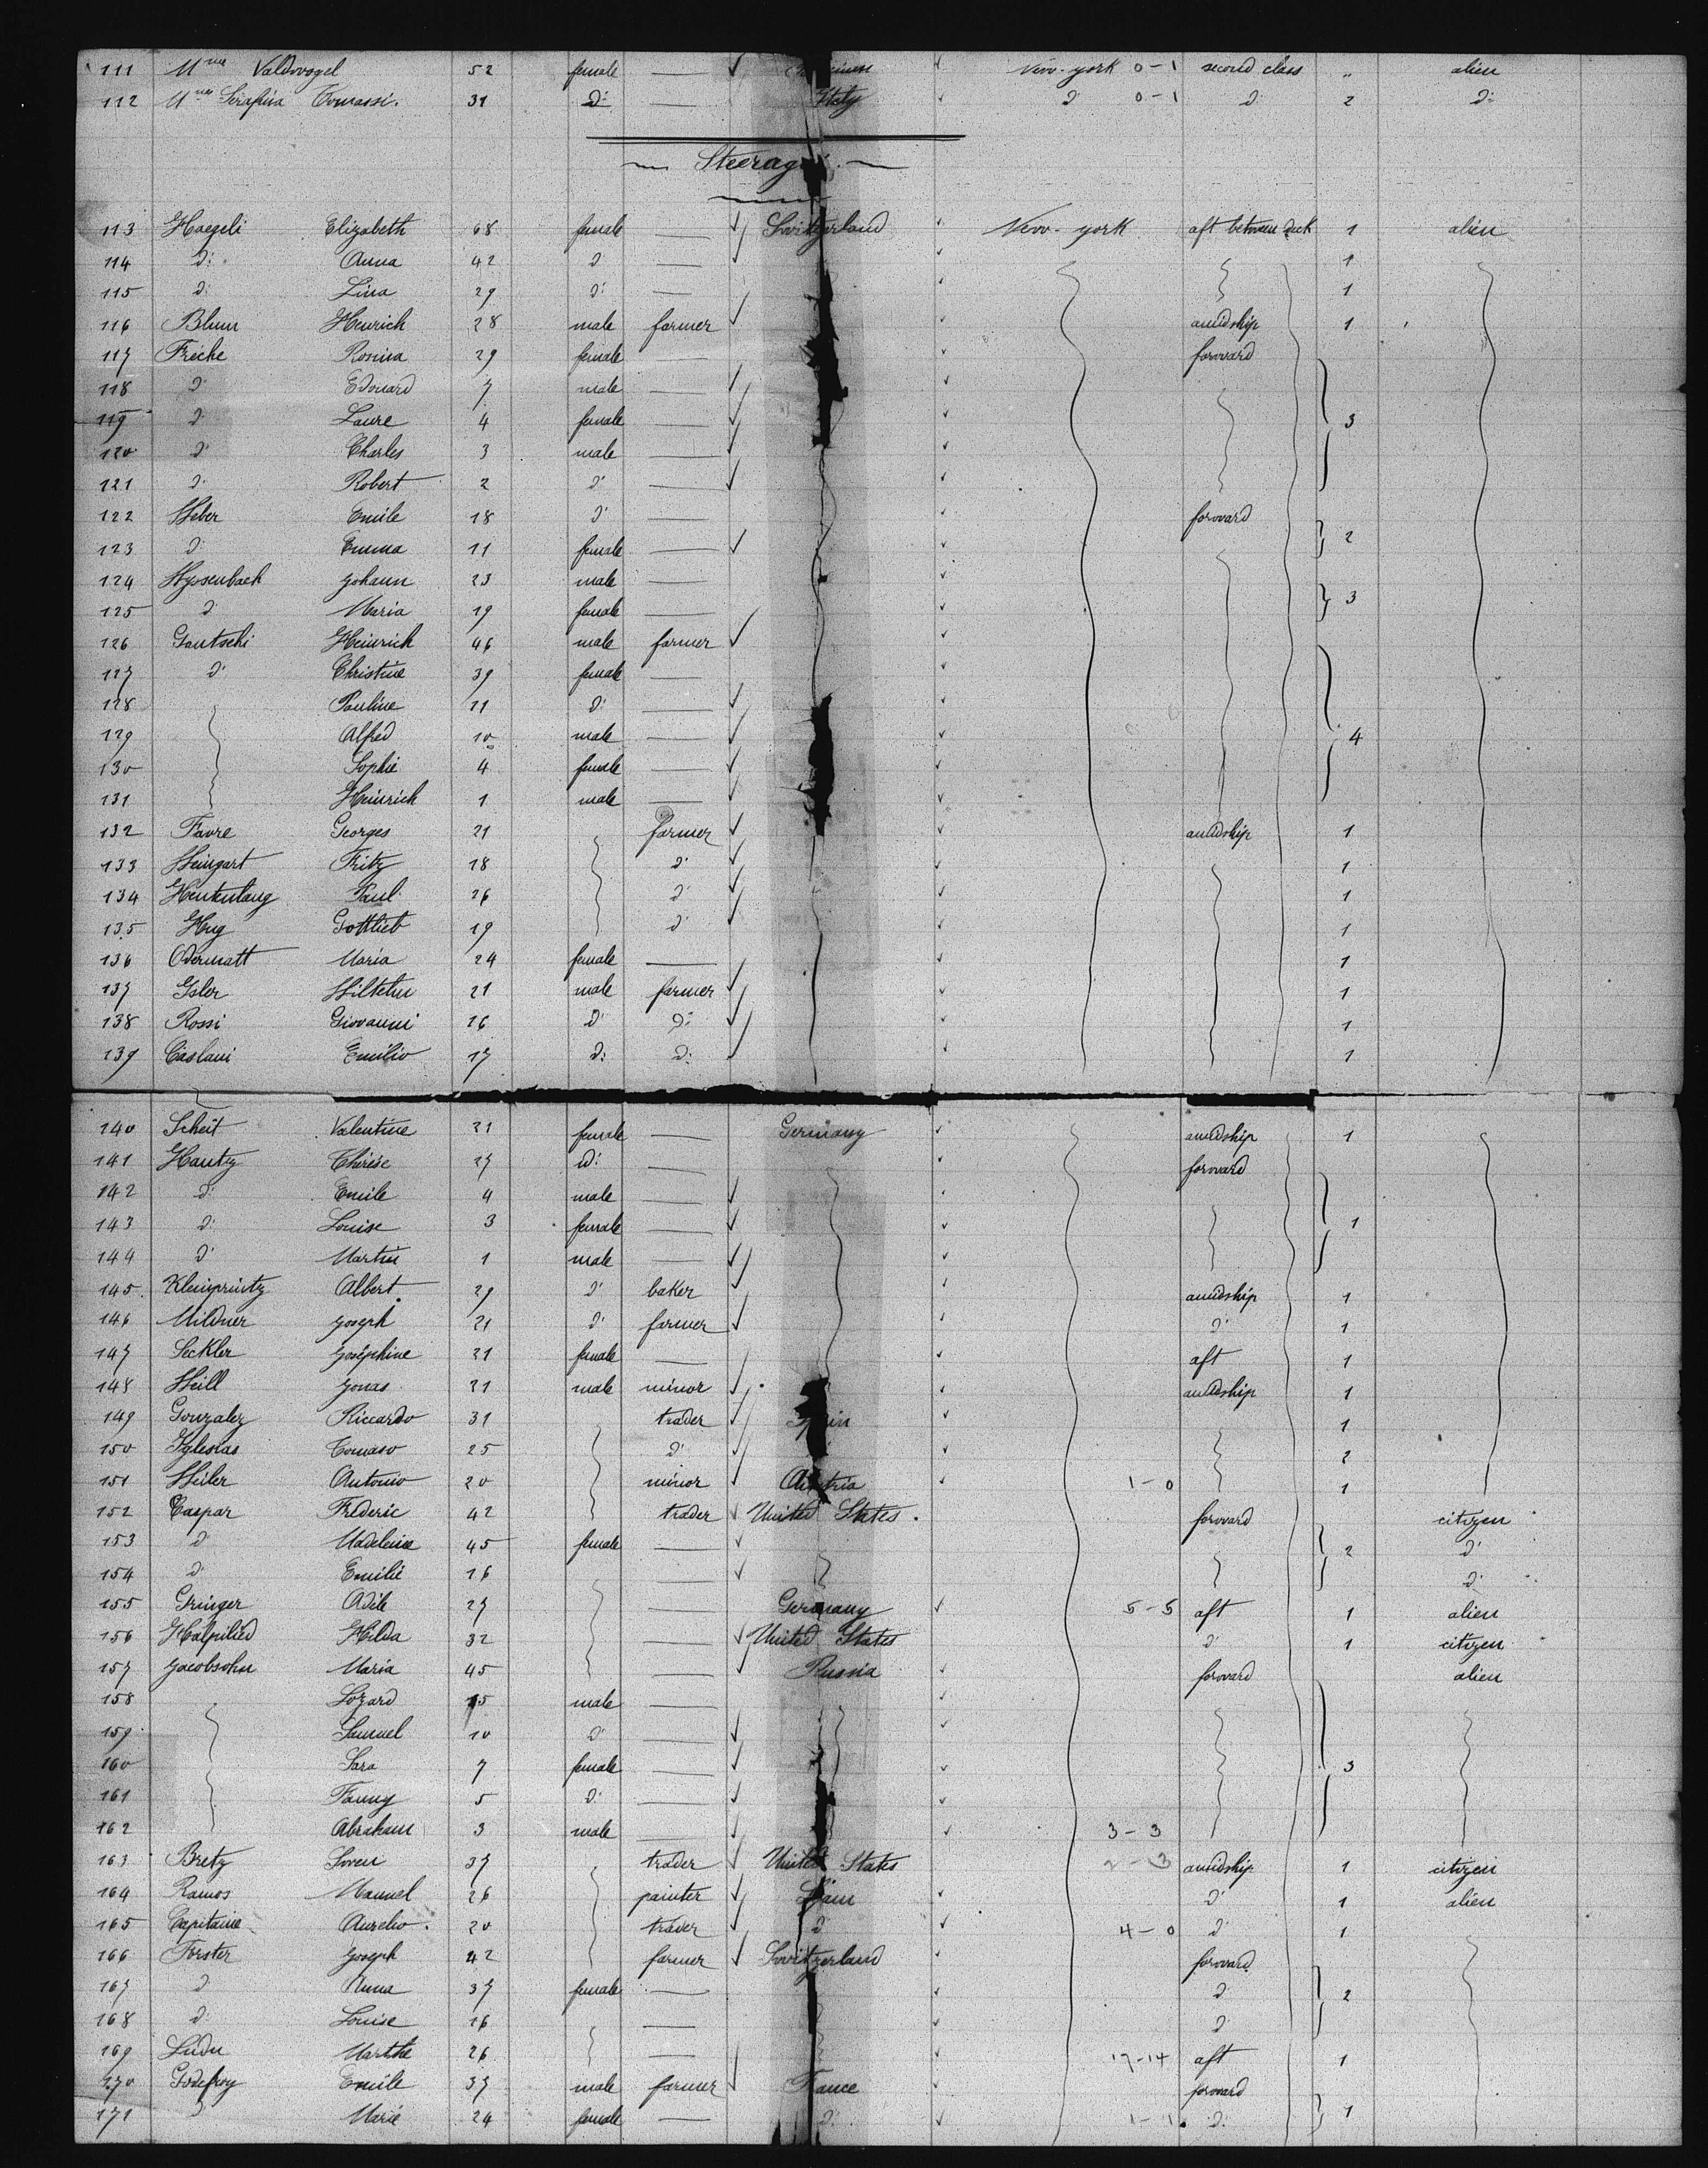 111 Mme Valdvogel 52 female — second class New-york 0-1 " alien
112 Mme Serafina Tomassi. 31 d: — Italy d 0-1 d: 2 d:
Steerage.
113 Haegeli Elizabeth 68 female — Switzerland New-york aft between deck 1 alien
114 d: Anna 42 d — 1
115 d: Lina 29 d: — 1
116 Blum Heinrich 28 male farmer amidship 1
117 Fréche Rosina 29 female — forward
118 d: Edouard 7 male —
119 d: Laure 4 female — 3
120 d: Charles 3 male —
121 d: Robert 2 d: —
122 Weber Emile 18 d: — forward
123 d: Emma 11 female — 2
124 Wyssenbach Johann 23 male —
125 d: Maria 19 female — 3
126 Gautschi Heinrich 46 male farmer
127 d: Christine 39 female —
128 Pauline 11 d: —
129 Alfred 10 male — 4
130 Sophie 4 female —
131 Heinrich 1 male —
132 Favre Georges 21 farmer amidship 1
133 Weingart Fritz 18 d: 1
134 Paul 26 d: 1
135 Hug Gottlieb 19 d: 1
136 Odermatt Maria 24 female — 1
137 Isler Wilhelm 21 male farmer 1
138 Rossi Giovanni 26 d: d: 1
139 Caslani Emilio 17 d: d: 1
140 Scheit Valentine 21 female — Germany amidship 1
141 Hautz Thérèse 27 d: — forward
142 d: Emile 4 male —
143 d: Louise 3 female — 1
144 d: Martin 1 male —
145 Kleinprintz Albert 29 d: baker amidship 1
146 Mildner Joseph 21 d: farmer d: 1
147 Seckler Joséphine 21 female — aft 1
148 Weill Jonas 21 male minor amidship 1
149 Gonzalez Riccardo 31 trader Spain 1
150 Iglesias Tomaso 25 d: 2
151 Weiler Antonio 20 minor Austria 1-0 1
152 Caspar Fréderic 42 trader United States. forward citizen
153 d: Madeleine 45 female — 2 d:
154 d: Emilie 16 — d:
155 Gringer Adèle 27 — Germany 5-5 aft 1 alien
156 Halpilied Hilda 32 — United States d: 1 citizen
157 Jacobsohn Maria 45 — Russia forward alien
158 Lozard 15 male —
159 Samuel 10 d: —
160 Sara 7 female — 3
161 Fanny 5 d: —
162 Abraham 3 male — 3-3
163 Bretz Soven 37 trader United States 2-3 amidship 1 citizen
164 Ramos Manuel 26 painter Spain d: 1 alien
165 Capitaine Aurelio. 20 trader d: 4-0 d: 1
166 Forster Joseph 42 farmer Switzerland forward
167 d: Anna 37 female — d: 2
168 d: Louise 16 — d:
169 Ludu Marthe 26 — 17-14 aft 1
170 Godefroy Emile 37 male farmer France forward
171 d: Marie 24 female — d: 1-1 d: 1